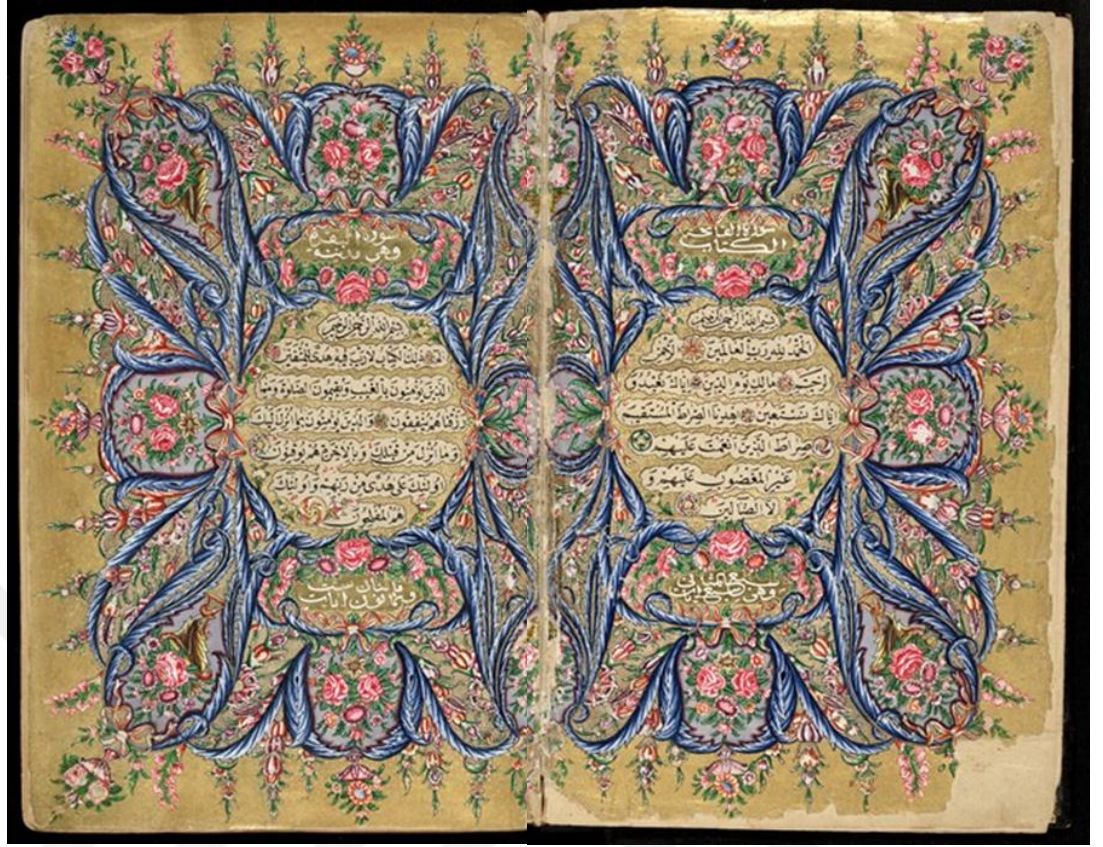 سورة الفاتحة
الكتاب
بسم الله الرحمن الرحيم
الحمد لله رب العالمين الرحمن
الرحيم مالك يوم الدين اياك نعبد و
اياك نستعين اهدنا الصراط المستقيم
صراط الذين انعمت عليهم
غير المغضوب عليهم و
لا الضالين
سبع المثاني
وهي ايات
سورة البقرة
وهي مدنية
بسم الله الرحمن الرحيم
الم ذلك الكتاب لا ريب فيه هدى للمتقين
الذين يؤمنون بالغيب ويقيمون الصلوة ومما
رزقناهم ينفقون والذين يؤمنون بما انزل اليك
وما انزل من قبلك وبالاخرة هم يوقنون
اولئك على هدى من ربهم واولئك
هم المفلحون
مائتان ست
وثمانون ايات